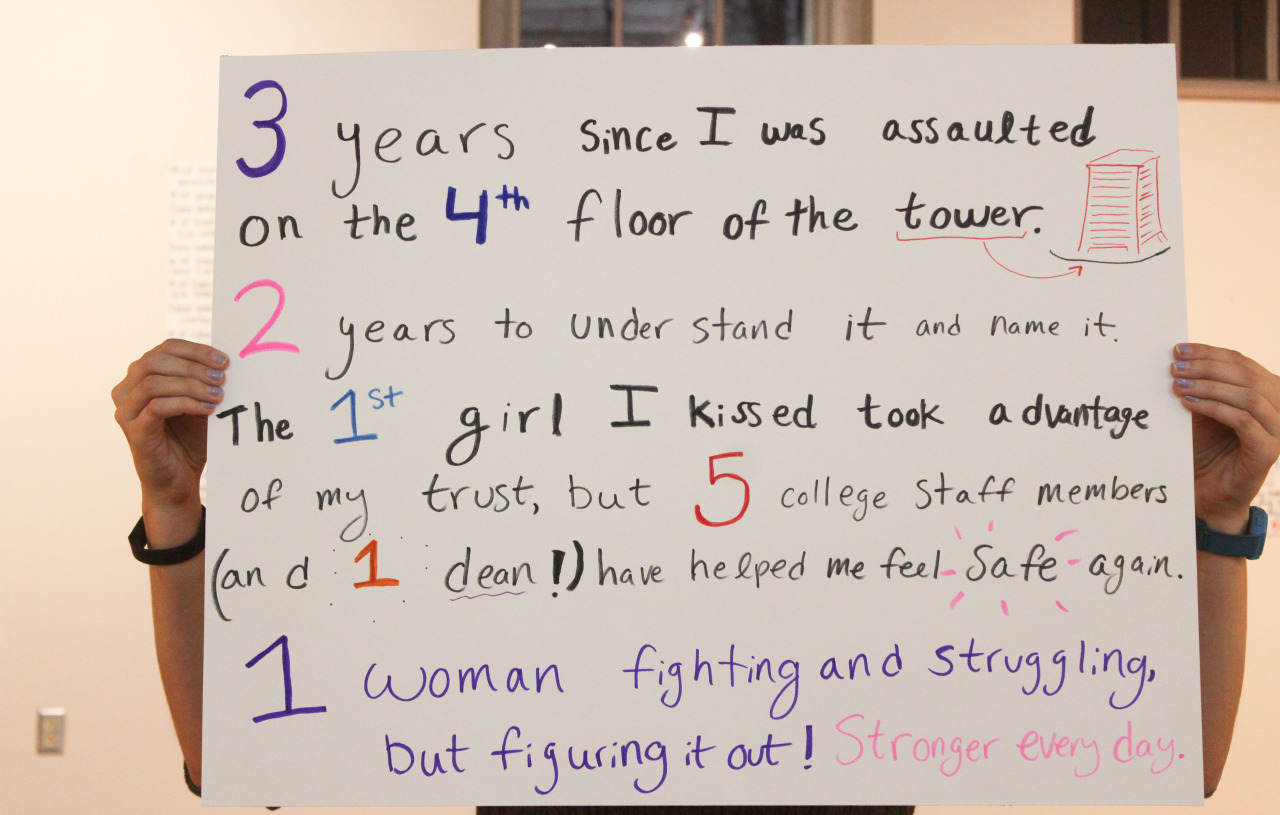 3 years since I was assaulted
on the 4th floor of the tower.
2 years to understand it and name it.
The 1st girl I kissed took advantage
of my trust, but 5 college staff members
(and 1 dean!) have helped me feel safe again.
1 woman fighting and struggling,
but figuring it out! Stronger every day.